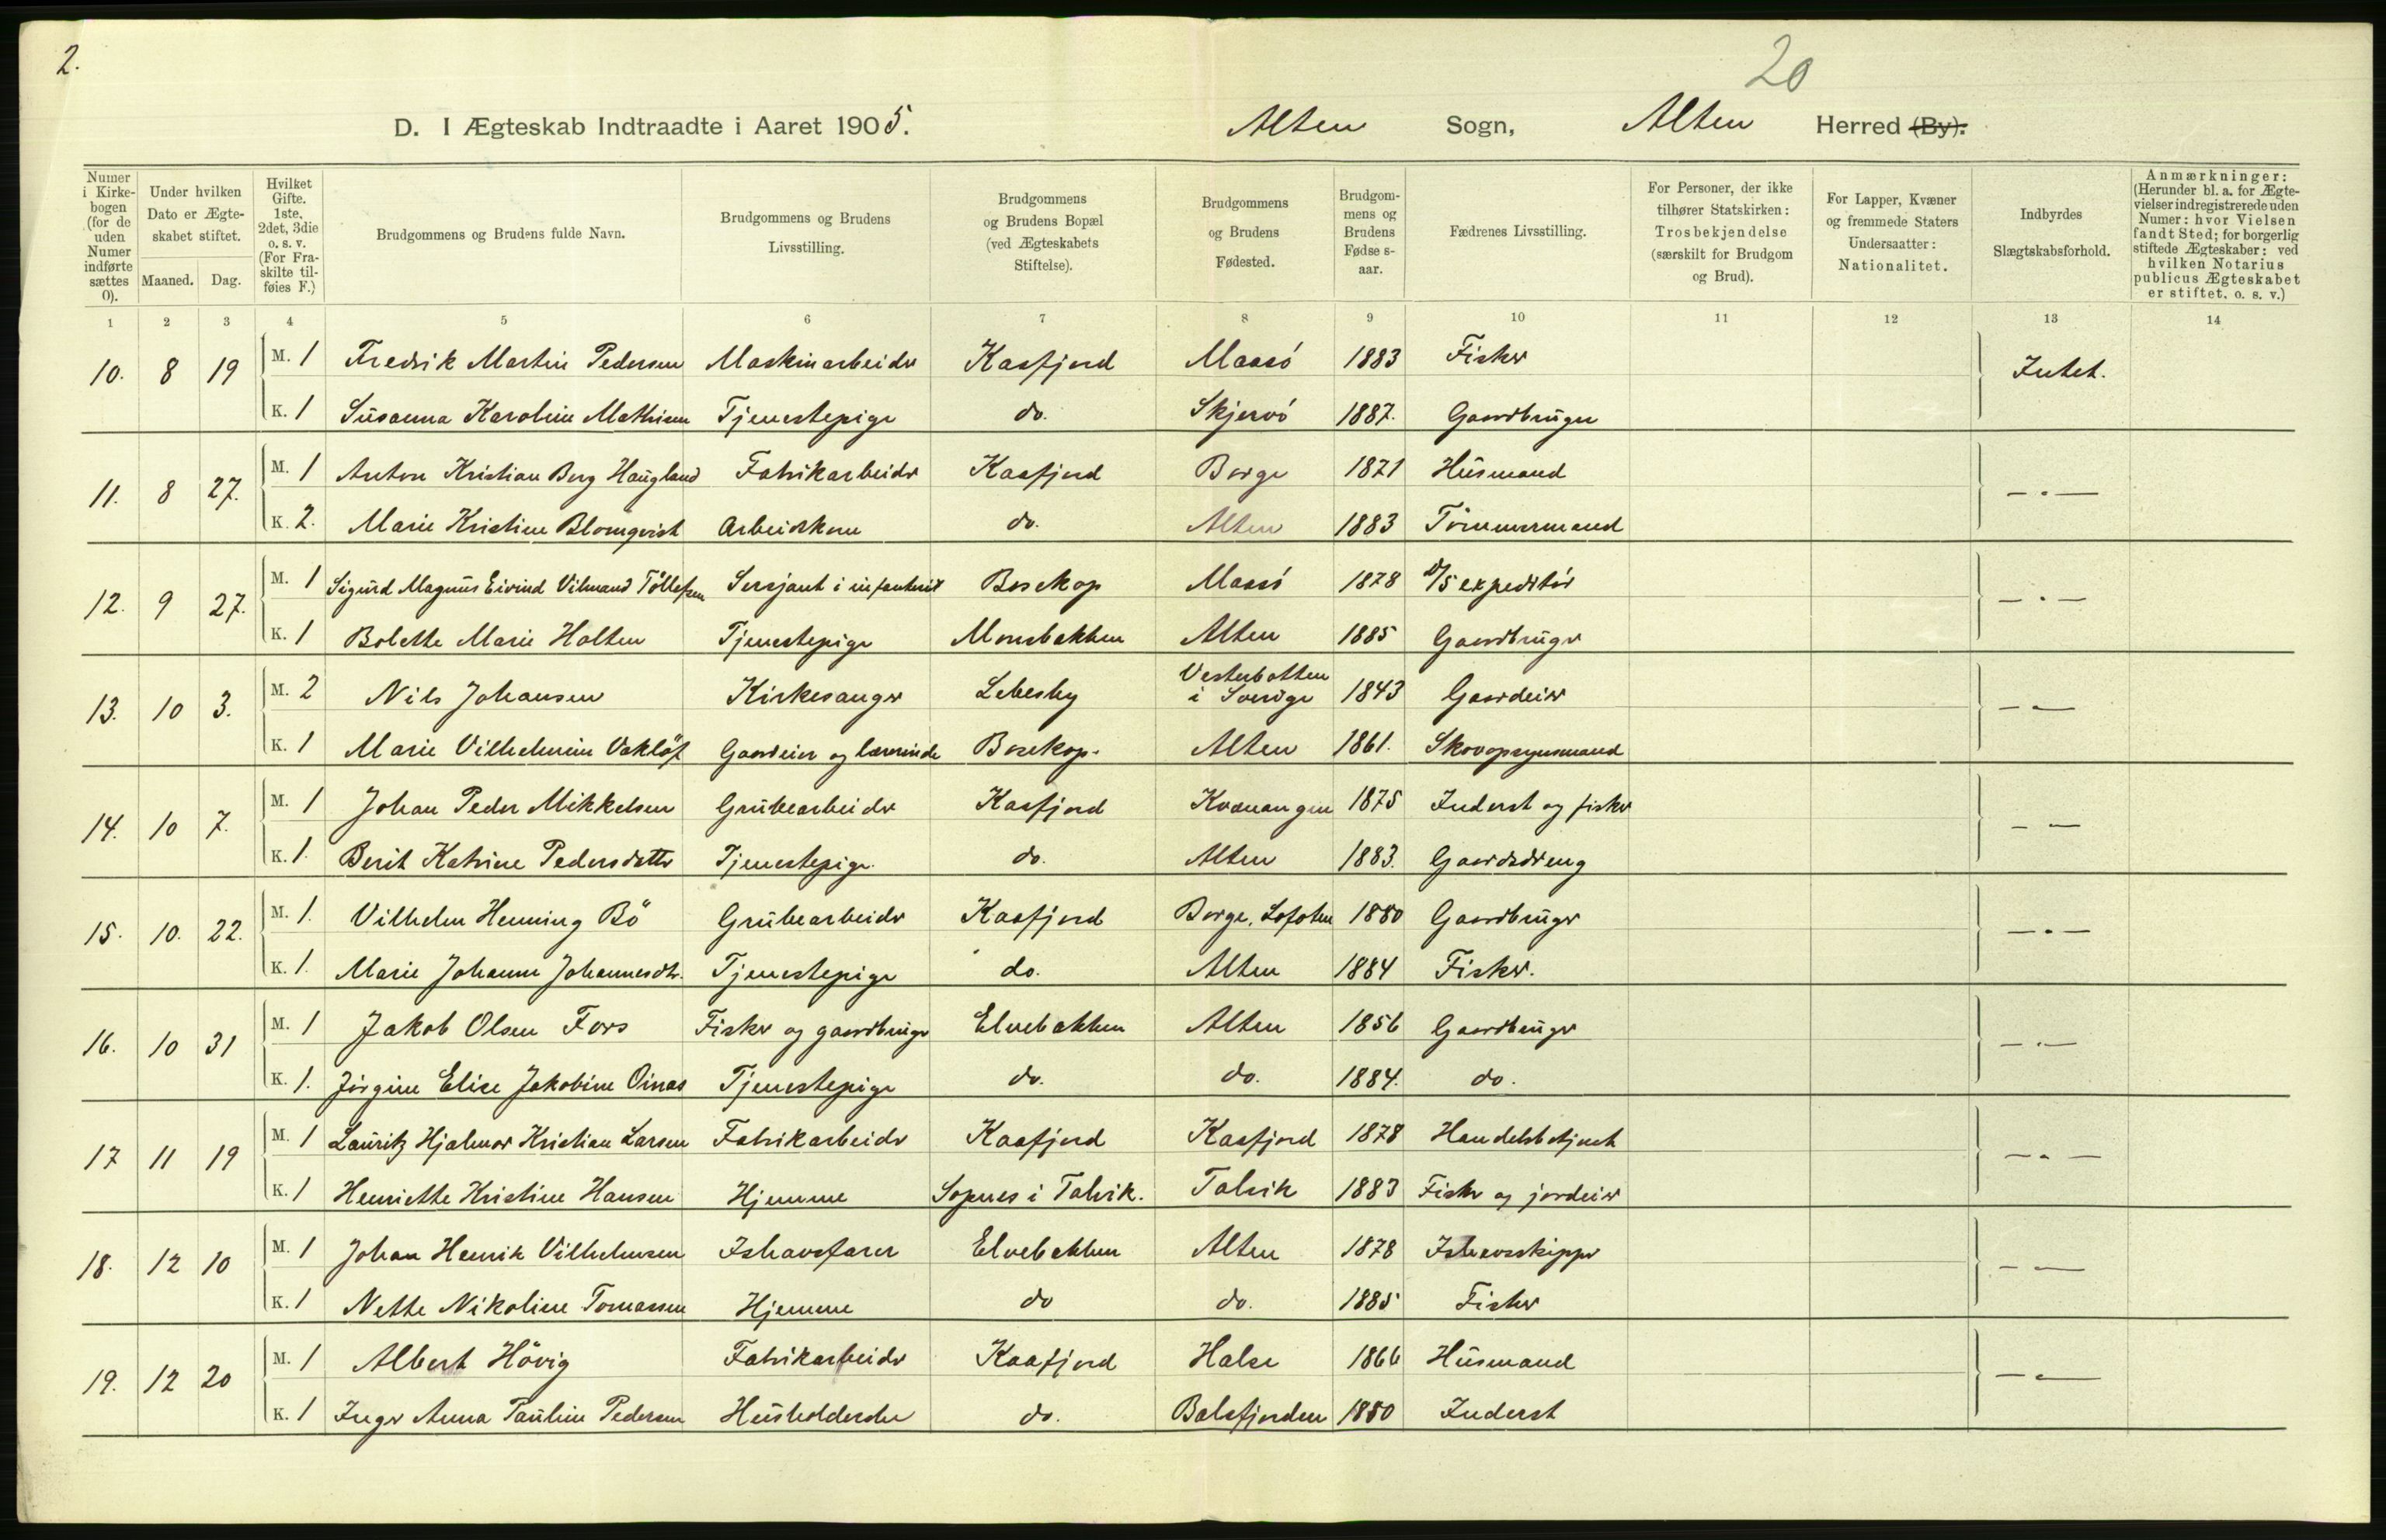 2.
20
D. I Ægteskab Indtraadte i Aaret 1905. Alten Sogn, Alten Herred (By).
Numer i Kirkebogen (for de uden Numer indførte sættes 0).
Under hvilken Dato er Ægteskabet stiftet.
Maaned. Dag.
Hvilket Gifte. 1ste, 2det, 3die o. s. v. (For Fraskilte tilføies F.)
Brudgommens og Brudens fulde Navn.
Brudgommens og Brudens Livsstilling.
Brudgommens og Brudens Bopæl (ved Ægteskabets Stiftelse).
Brudgommens og Brudens Fødested.
Brudgommens og Brudens Fødselsaar.
Fædrenes Livsstilling.
For Personer, der ikke tilhører Statskirken: Trosbekjendelse (særskilt for Brudgom og Brud).
For Lapper, Kvæner og fremmede Staters Undersaatter: Nationalitet.
Indbyrdes Slægtskabsforhold.
Anmærkninger: (Herunder bl. a. for Ægtevielser indregistrerede uden Numer: hvor Vielsen fandt Sted; for borgerlig stiftede Ægteskaber: ved hvilken Notarius publicus Ægteskabet er stiftet. o. s. v.)
1 2 3 4 5 6 7 8 9 10 11 12 13 14
10. 8 19 M. 1 Fredrik Martin Pedersen Maskinarbeider Kaafjord Maasö 1883 Fisker Intet.
K. 1 Susanna Karoline Mathisen Tjenestepige do. Skjervö 1887. Gaardbruger
11. 8 27. M. 1 Anton Kristian Berg Haugland Fabrikarbeider Kaafjord Borge 1871 Husmand — " —
K. 2. Marie Kristine Blomqvist Arbeiderkone do. Alten 1883 Tömmermand
12. 9 27. M. 1 Sigurd Magnus Eivind Vilmand Tollefsen Sersjant i infanteriet Bosekop Maasö 1878 D/S expeditör — " —
K. 1 Bolette Marie Holten Tjenestepige Monsbakken Alten 1885 Gaardbruger
13. 10 3. M. 2 Nils Johansen Kirkesanger Lebesby Vesterbotten i Sverige 1843 Gaardeier — " —
K. 1 Marie Vilhelmine Vaklöf Gaardeier og lærerinde Bosekop. Alten 1861. Skovopsynsmand
14. 10 7. M. 1 Johan Peder Mikkelsen Grubearbeider Kaafjord Kvænangen 1875 Inderst og fisker — " —
K. 1. Berit Katrine Pedersdatter Tjenestepige. do. Alten 1883. Gaardsdreng
15. 10. 22. M. 1. Vilhelm Henning Bö Grubearbeider Kaafjord Borge, Lofoten 1880 Gaardbruger — " —
K. 1. Marie Johanne Johannesdtr. Tjenestepige do. Alten 1884 Fisker.
16. 10 31 M. 1 Jakob Olsen Fors Fisker og gaardbruger Elvebakken Alten 1856 Gaardbruger — " —
K. 1. Jörgine Elise Jakobine Oinas Tjenestepige do. do. 1884. do.
17 11 19 M. 1 Lauritz Hjalmar Kristian Larsen Fabrikarbeider Kaafjord Kaafjord 1878 Handelsbetjent — " —
K. 1 Henriette Kristine Hansen Hjemme Sopnes i Talvik. Talvik 1883 Fisker og jordeier
18. 12 10 M. 1 Johan Henrik Vilhelmsen Ishavsfarer Elvebakken Alten 1878 Ishavsskipper — " —
K. 1 Nette Nikoline Tomassen Hjemme do do. 1885 Fisker
19. 12 20 M. 1 Albert Hövig Fabrikarbeider Kaafjord Halse 1866 Husmand — " —
K. 1 Inger Anna Pauline Pedersen Husholderske do. Balsfjorden 1880 Inderst